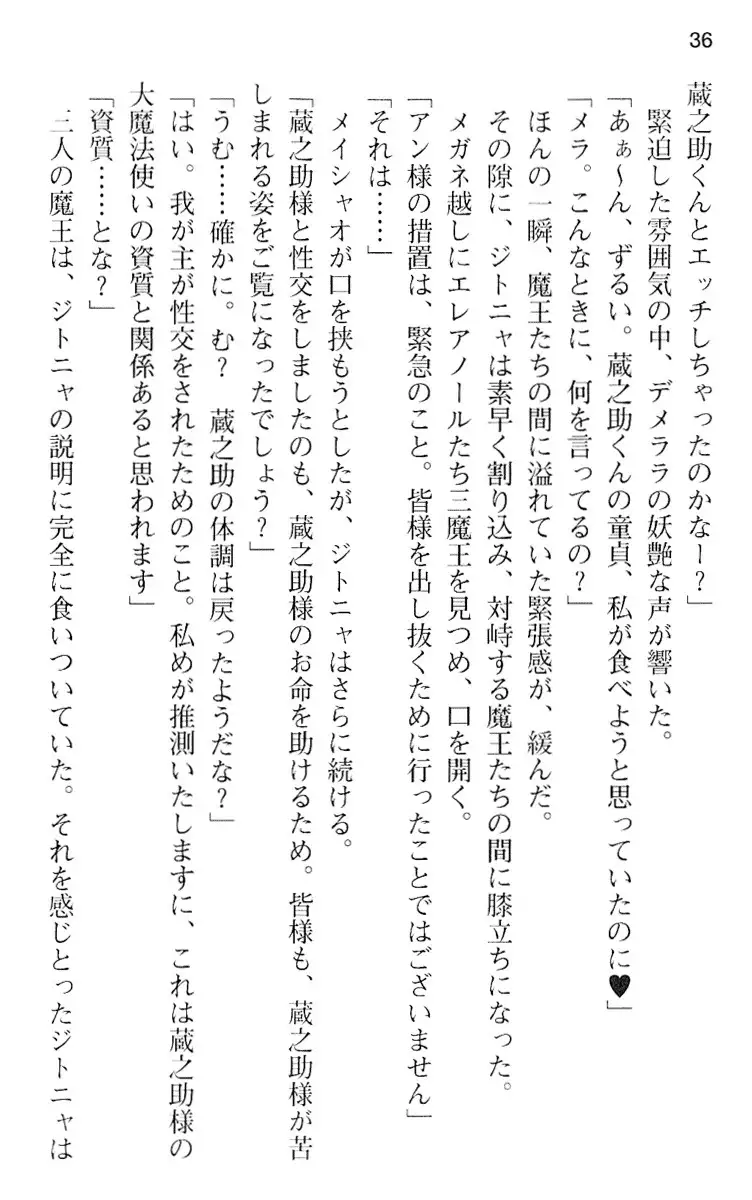 36
蔵之助くんとエッチしちゃったのかなー？」
緊迫した雰囲気の中、デメララの妖艶な声が響いた。
「あぁ〜ん、ずるい。蔵之助くんの童貞、私が食べようと思っていたのに♥」
「メラ。こんなときに、何を言ってるの？」
ほんの一瞬、魔王たちの間に溢れていた緊張感が、緩んだ。
その隙に、ジトニャは素早く割り込み、対峙する魔王たちの間に膝立ちになった。
メガネ越しにエレアノールたち三魔王を見つめ、口を開く。
「アン様の措置は、緊急のこと。皆様を出し抜くために行ったことではございません」
「それは……」
メイシャオが口を挟もうとしたが、ジトニャはさらに続ける。
「蔵之助様と性交をしましたのも、蔵之助様のお命を助けるため。皆様も、蔵之助様が苦
しまれる姿をご覧になったでしょう？」
「うむ……確かに。む？　蔵之助の体調は戻ったようだな？」
「はい。我が主が性交をされたためのこと。私めが推測いたしますに、これは蔵之助様の
大魔法使いの資質と関係あると思われます」
「資質……とな？」
三人の魔王は、ジトニャの説明に完全に食いついていた。それを感じとったジトニャは